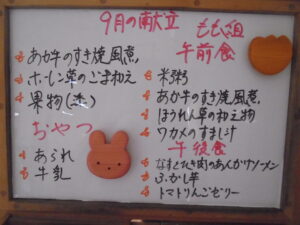 9月の献立 ももく組
あか牛のすき焼風煮
ホーレン草のごま和え
果物(杏)
おやつ
あられ
牛乳
午前食
米粥
あか牛のすき焼風煮
ほうれん草の和え物
ワカメのすまし汁
午後食
なすとひき肉のあんかけソーメン
ふかし芋
トマトりんごゼリー